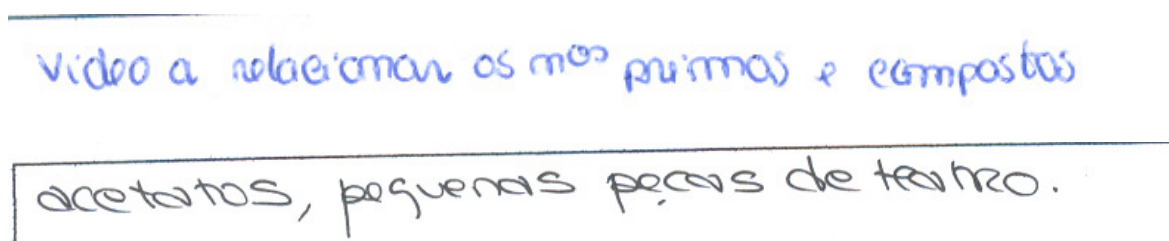 video a relacionar os nos primos e compostos
acetatos, pequenas peças de teatro.